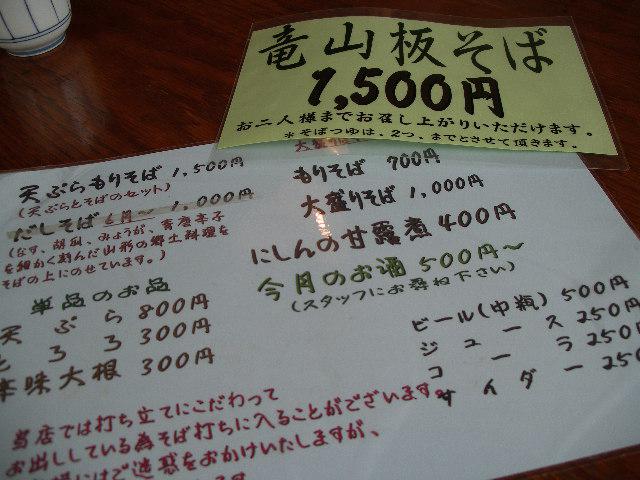 竜山板そば
1,500円
お二人様までお召し上がりいただけます。
＊そばつゆは、2つ、までとさせて頂きます。
天ぷらもりそば 1,500円
(天ぷらとそばのセット)
だしそば 6月〜 1,000円
(なす、胡瓜、みょうが、青唐辛子
を細かく刻んだ山形の郷土料理を
そばの上にのせています。)
単品のお品
天ぷら 800円
とろろ 300円
辛味大根 300円
もりそば 700円
大盛りそば 1,000円
にしんの甘露煮 400円
今月のお酒 500円〜
(スタッフにお尋ね下さい)
ビール(中瓶) 500円
ジュース 250円
コーラ 250
サイダー 250
当店では打ち立てにこだわって
お出ししている為そば打ちに入ることがございます。
様にはご迷惑をおかけいたしますが、